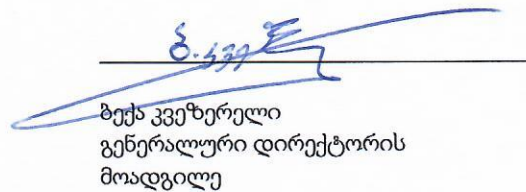 ბექა კვეზერელი
გენერალური დირექტორის
მოადგილე